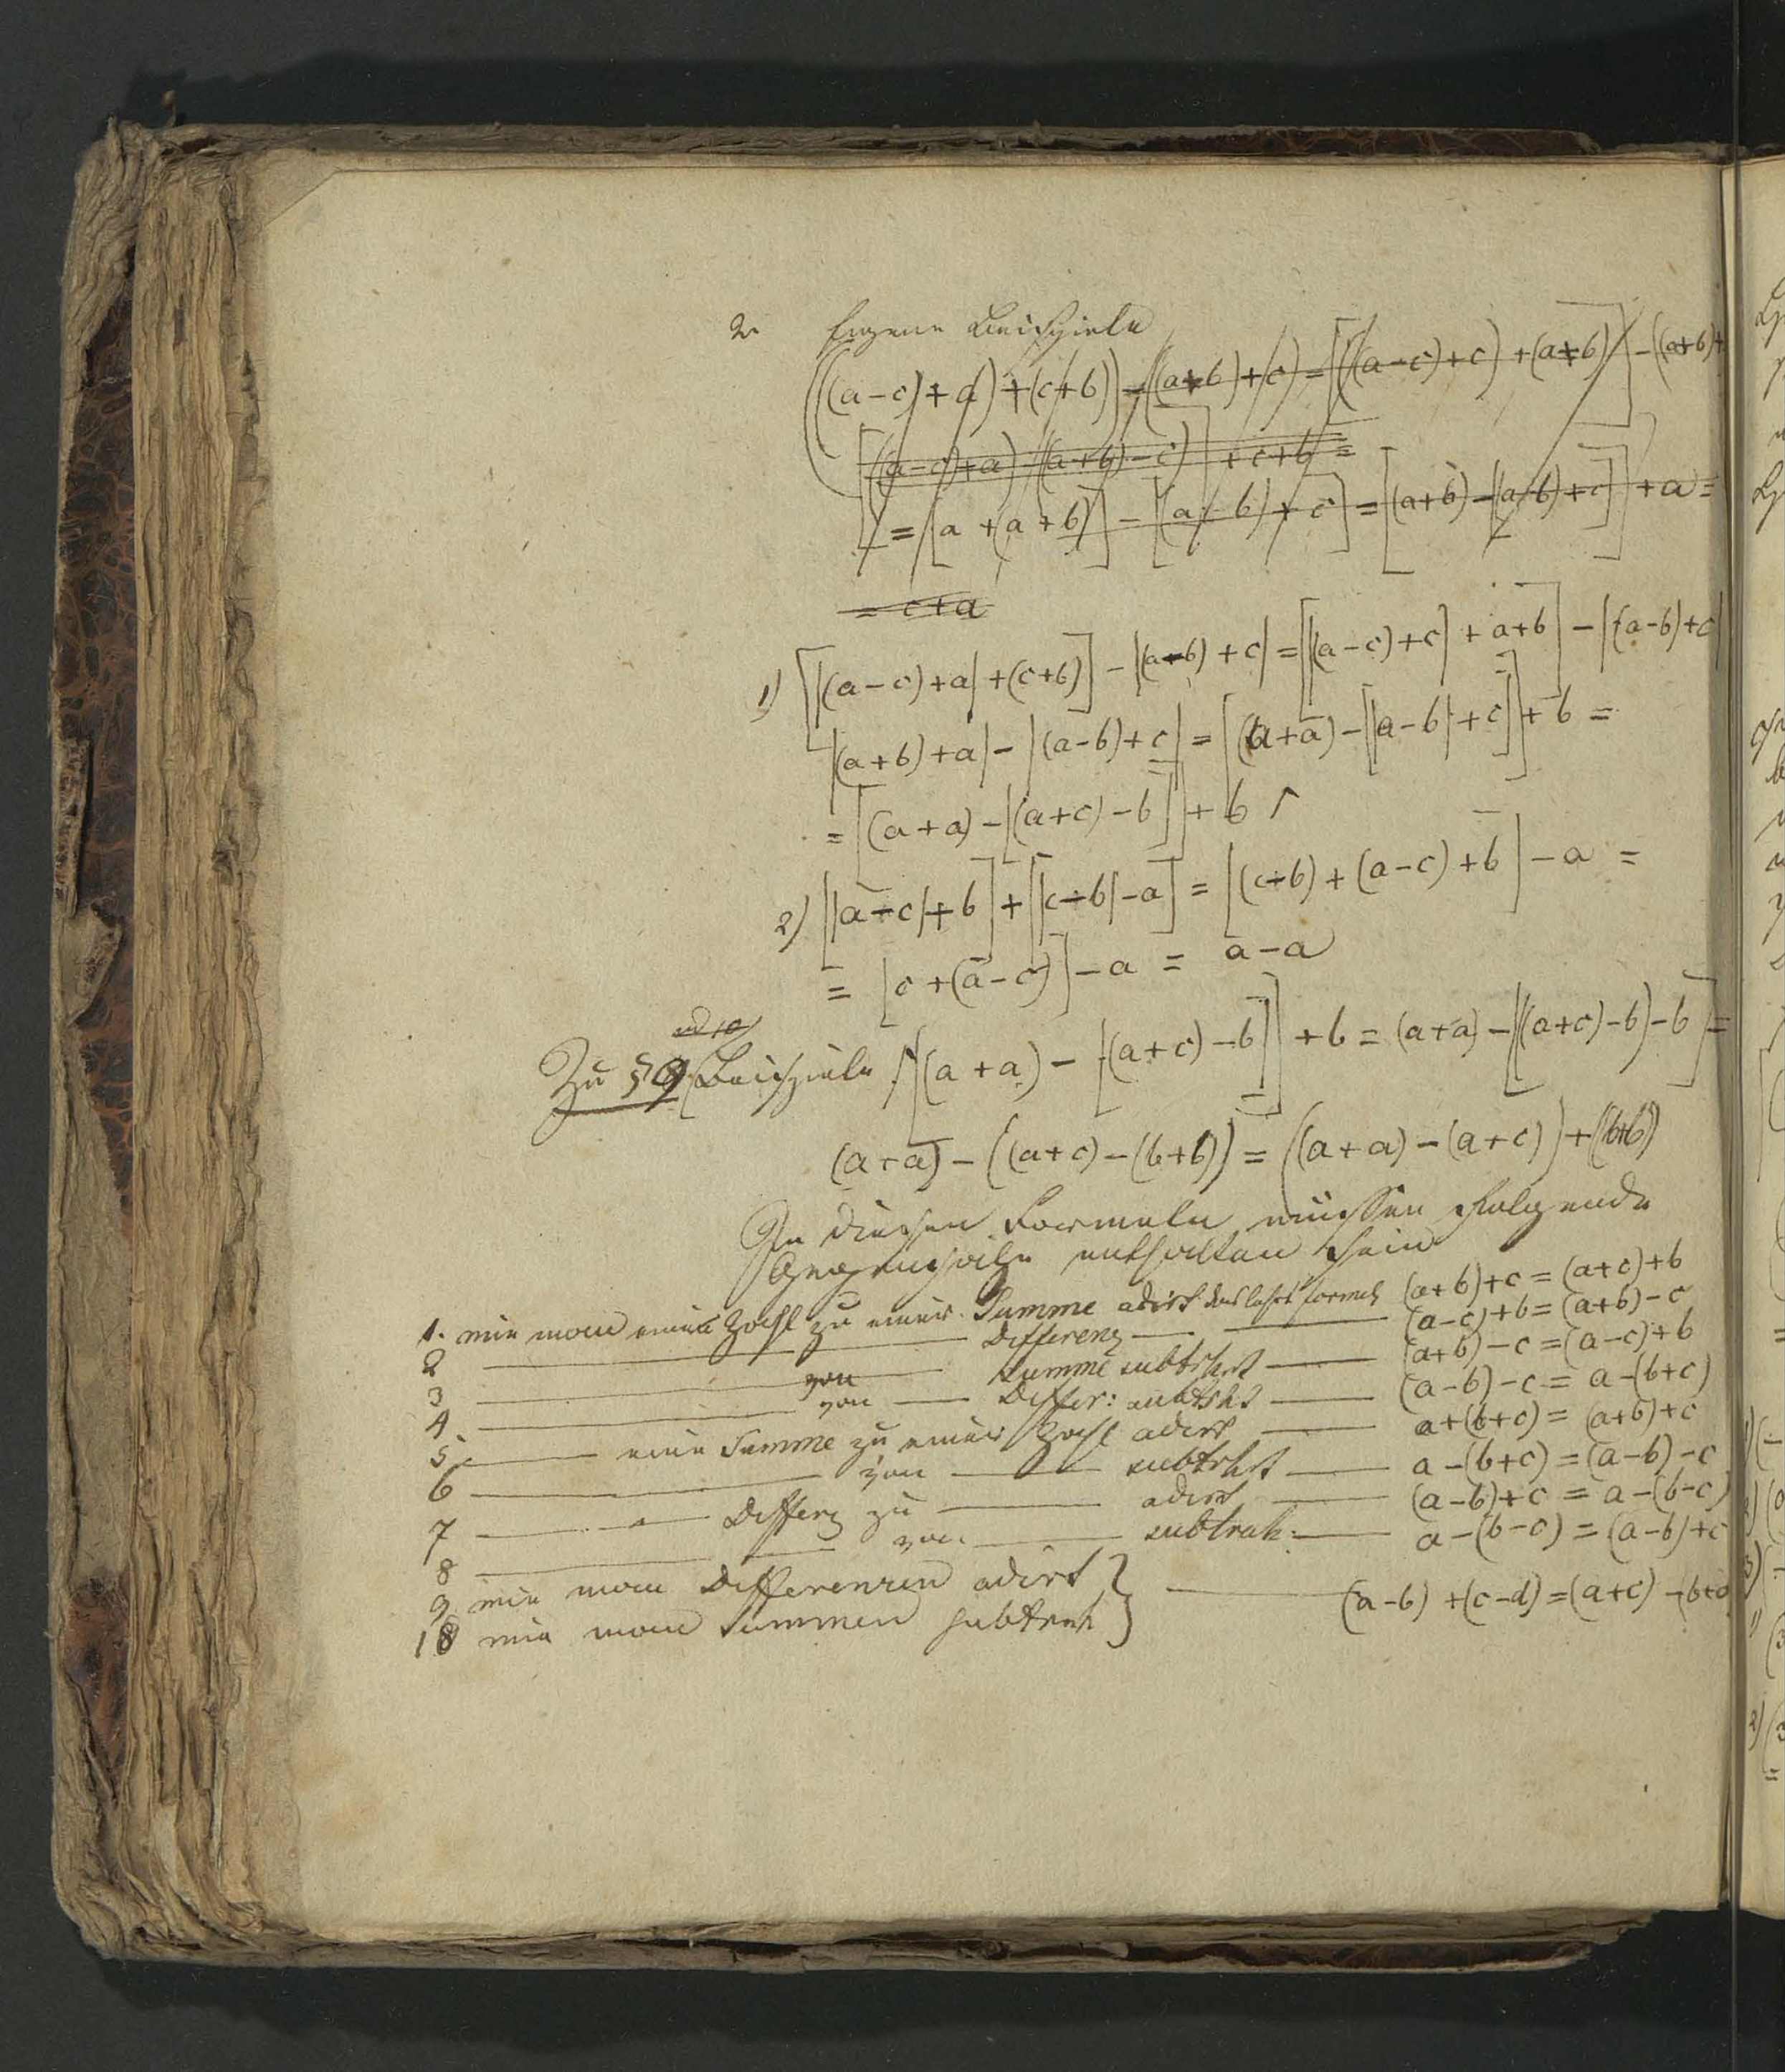 2. Eigene Beispiele
((a-c)+a)+(c+b))-((a+b)+c)=[((a-c)+c)+(a+b)]-((a+b)+
[((a-c)+a)-((a+b)-c)]+c+b=
=[a+(a+b)]-[(a-b)+c]=[(a+b)-[(a-b)+c]]+a=
=c+a
1) [[(a-c)+a]+(c+b)]-[(a-b)+c]=[[(a-c)+c]+a+b]-[(a-b)+c]
[(a+b)+a]-[(a-b)+c]=[(a+a)-[[a-b]+c]]+b=
=[(a+a)-[(a+c)-b]]+b
2) [[a-c]+b]+[[c-b]-a]=[(c-b)+(a-c)+b]-a=
=[c+(a-c)]-a=a-a
Zu §9 Beispiele [(a+a)-[(a+c)-b]]+b=(a+a)-[((a+c)-b)-b]=
(a+a)-((a+c)-(b+b))=((a+a)-(a+c))+(b+b)
In diesen Formeln müssen folgende
Gegensätze enthalten sein
1. wie man eine Zahl zu einer Summe adirt das lehrt Formel (a+b)+c=(a+c)+b
2 — Differenz — (a-c)+b=(a+b)-c
3 — von — Summe subtrhrt — (a+b)-c=(a-c)+b
4 — von — Differ: subtrht — (a-b)-c=a-(b+c)
5. — eine Summe zu einer Zahl adirt — a+(b+c)=(a+b)+c
6 — von — subtrht — a-(b+c)=(a-b)-c
7 — Differz zu — adirt — (a-b)+c=a-(b-c)
8 — von — subtrah: — a-(b-c)=(a-b)+c
9 wie man Differenzen adirt
10 wie man Summen subtrah } — (a-b)+(c-d)=(a+c)-(b+d